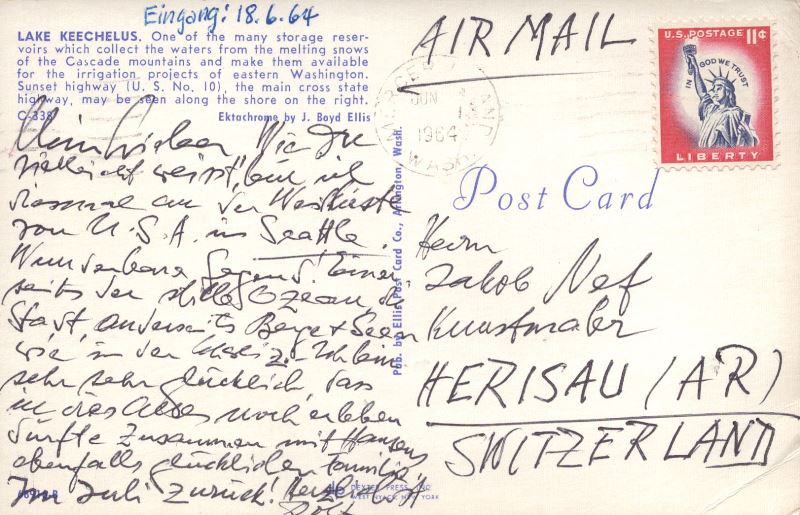 Eingang: 18.6.64
LAKE KEECHELUS. One of the many storage reser-
voirs which collect the waters from the melting snows
of the Cascade mountains and make them available
for the irrigation projects of eastern Washington.
Sunset highway (U. S. No. 10), the main cross state
highway, may be seen along the shore on the right.
C-338
Ektachrome by J. Boyd Ellis
Mein Lieber Wie Du
vielleicht weisst, bin ich
diesmal an der Westküste
von U.S.A. in Seattle.
Wunderbare Gegend! Einer
seits der stille Ozean, die
Stadt, anderseits Berge + Seen
wie in der Schweiz. Ich bin
sehr sehr glücklich, dass
ich dies Alles noch erleben
dürfte zusammen mit Hansens
ebenfalls glücklichen Familie
Im Juli zurück! Herzlichst
Pub. by Ellis Post Card Co., Arlington, Wash.
DEXTER PRESS, INC.
WEST NYACK, NEW YORK
AIR MAIL
MERCER ISLAND
JUN
1964
WASH.
U.S. POSTAGE 11¢
IN GOD WE TRUST
LIBERTY
Post Card
Herrn
Jakob Nef
Kunstmaler
HERISAU (AR)
SWITZERLAND